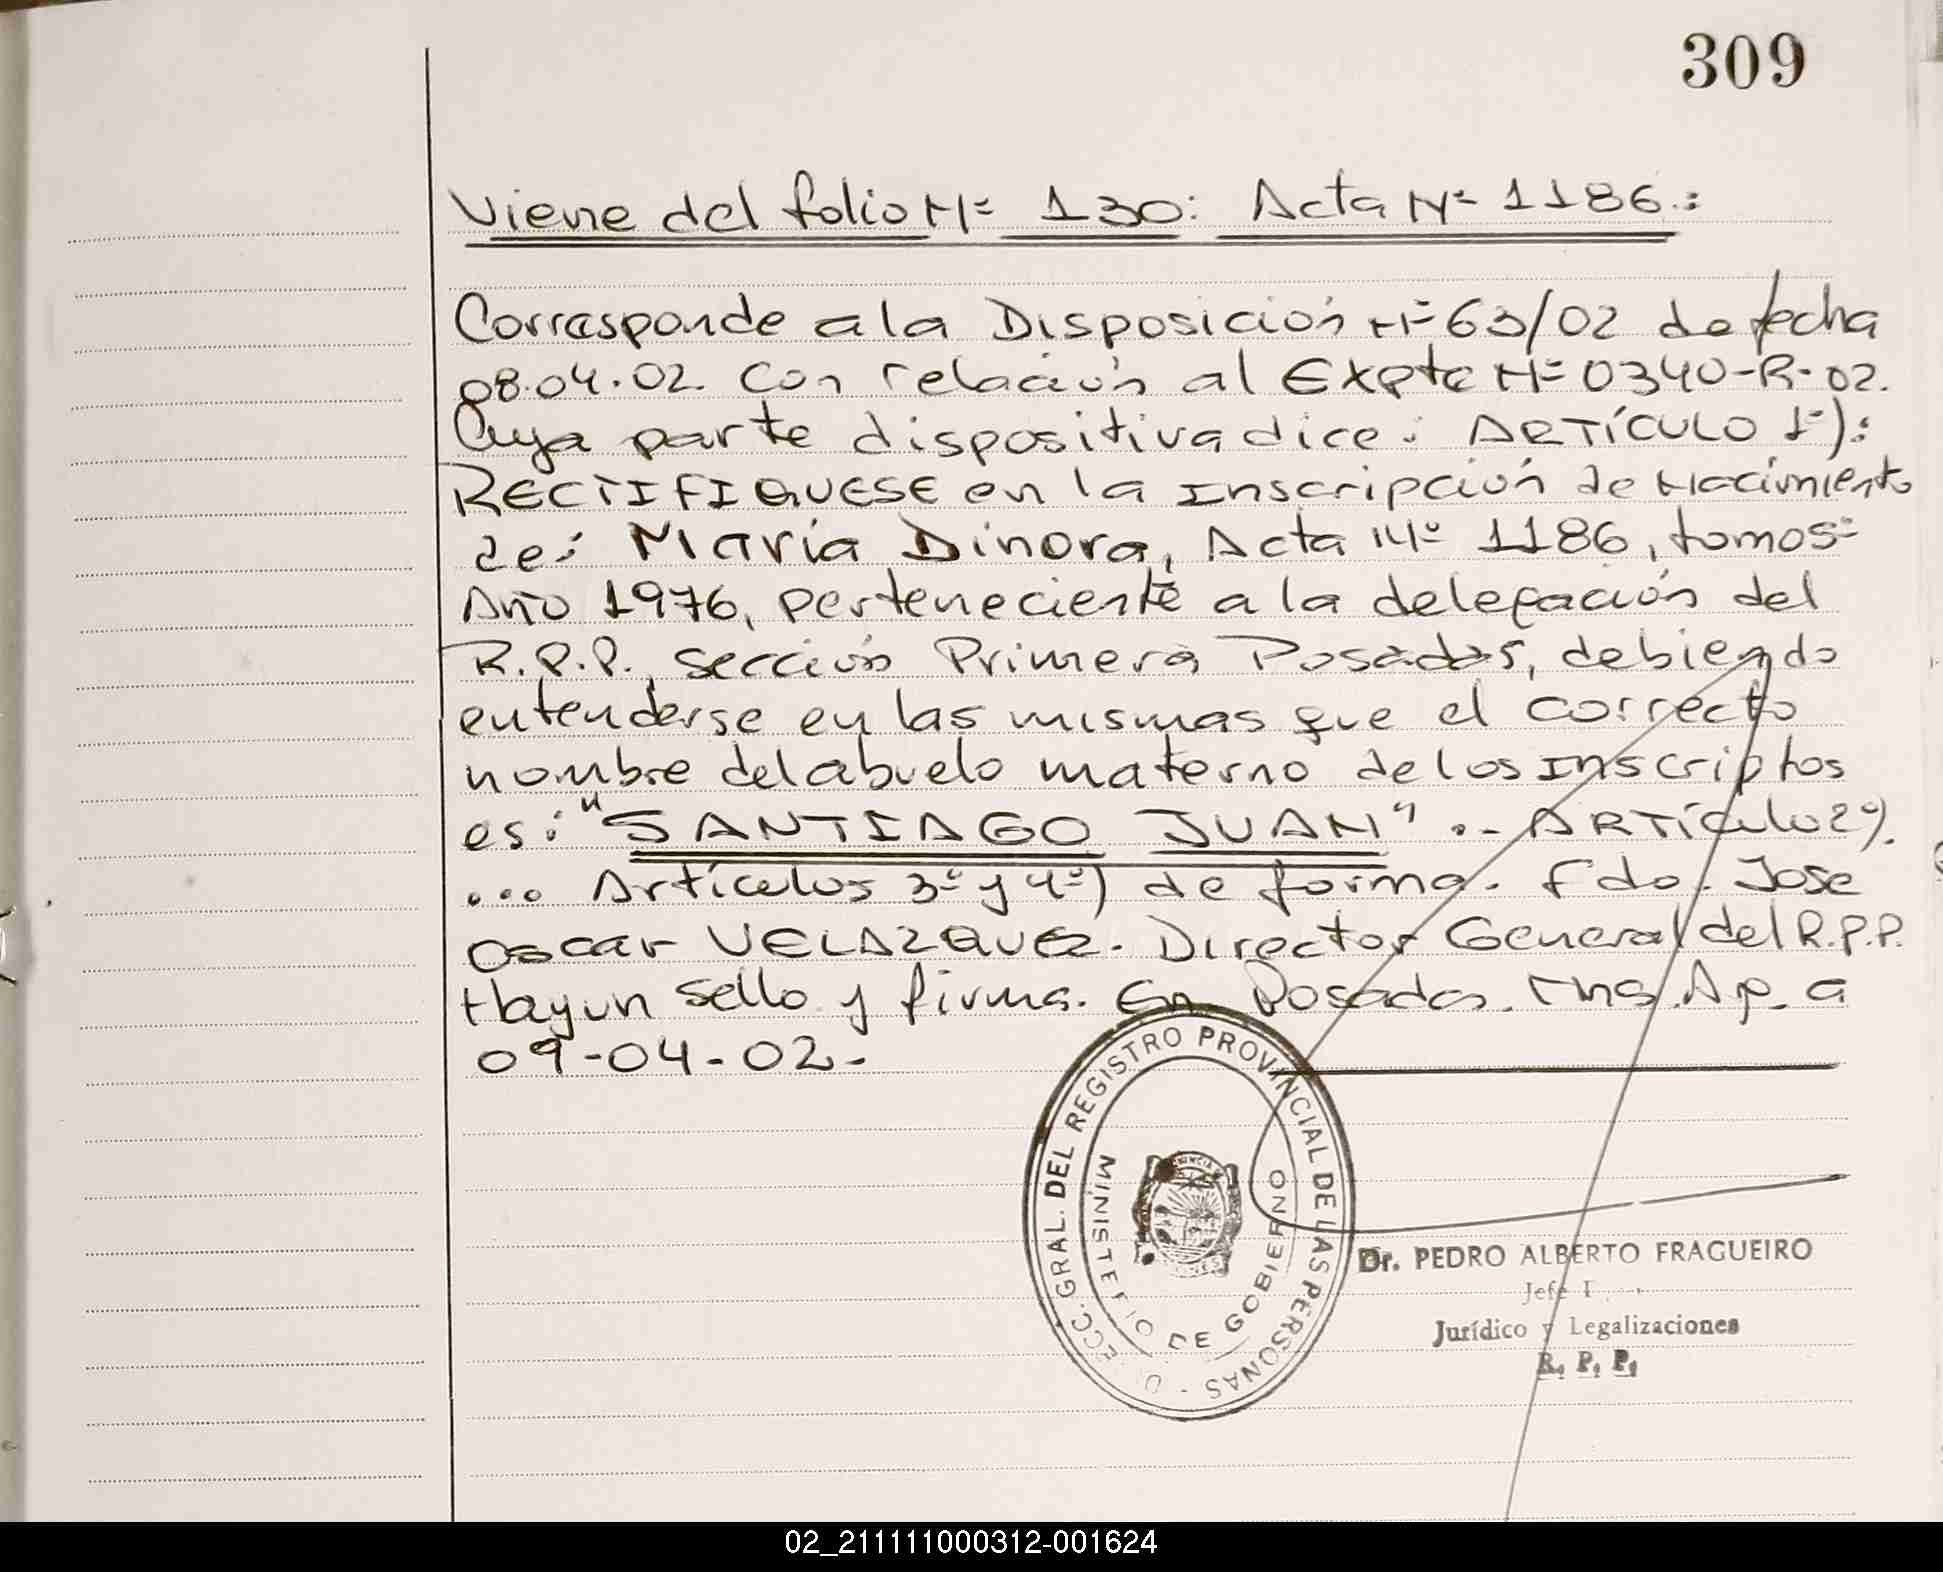 309
Viene del folio Nº 130: Acta Nº 1186.:
Corresponde a la Disposición Nº 63/02 de fecha
08.04.02. Con relación al Expte Nº 0340-R-02.
Cuya parte dispositiva dice: ARTÍCULO 1º):
RECTIFIQUESE en la Inscripción de Nacimiento
de: María Dinora, Acta Nº 1186, tomo 5º
Año 1976, perteneciente a la delegación del
R.P.P., sección Primera Posadas, debiendo
entenderse en las mismas que el correcto
nombre del abuelo materno de los Inscriptos
es: "SANTIAGO JUAN".- ARTÍculo 2º).
... Artículos 3º y 4º) de forma. Fdo. Jose
Oscar VELAZQUEZ. Director General del R.P.P.
Hay un sello y firma. En Posadas. Mns. Ap. a
09-04-02-
DIRECC. GRAL. DEL REGISTRO PROVINCIAL DE LAS PERSONAS -
MINISTERIO DE GOBIERNO
Dr. PEDRO ALBERTO FRAGUEIRO
Jefe
Jurídico y Legalizaciones
R. P. P.
02_211111000312-001624